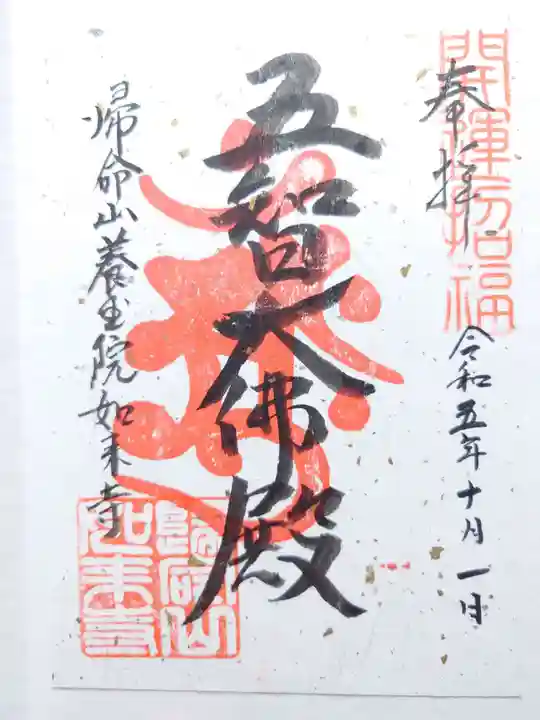 開運招福
奉拝
令和五年十月一日
五智大佛殿
帰命山養玉院如来寺
如来寺